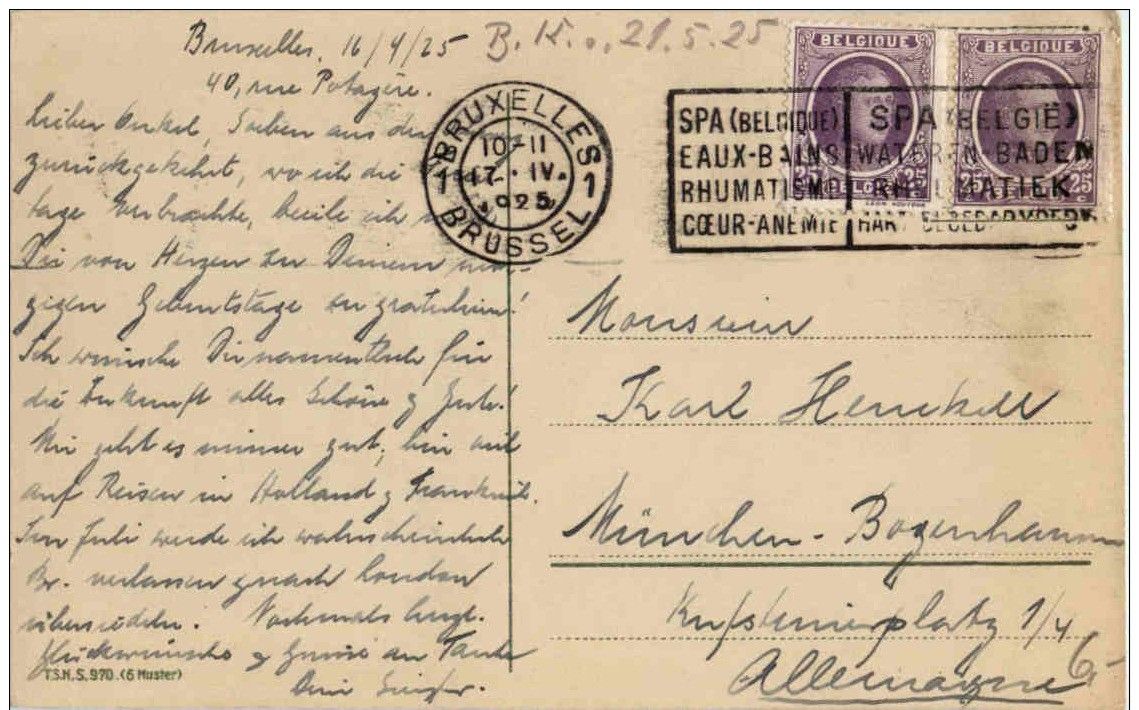 Bruxelles, 16/4/25
40, rue Potagère.
B. K. v. 21.5.25
Lieber Onkel, Soeben aus der
zurückgekehrt, wo ich die
tage verbrachte, beeile ich
Dir von Herzen zu Deinem
gigen Geburtstage zu gratulieren!
Ich wünsche Dir namentlich für
die Zukunft alles Schöne & Gute!
Mir geht es immer gut, bin viel
auf Reisen in Holland & Frankreich.
Im Juli werde ich wahrscheinlich
Br. verlassen & nach London
übersiedeln. Nochmals herzl.
Glückwünsche & Grüsse an Tante
Dein
T.S.N.S. 970. (6 Muster)
BRUXELLES
1 1
10-11
17. IV.
1925
BRUSSEL
BELGIQUE
BELGIQUE
SPA (BELGIQUE) SPA (BELGIË)
EAUX-BAINS WATEREN BADEN
RHUMATISME RHEUMATIEK
CŒUR-ANÉMIE HART BLOEDARMOEDE
25
25
Monsieur
Karl Henckell
München-Bogenhausen
Kufsteinerplatz 1/4
Allemagne